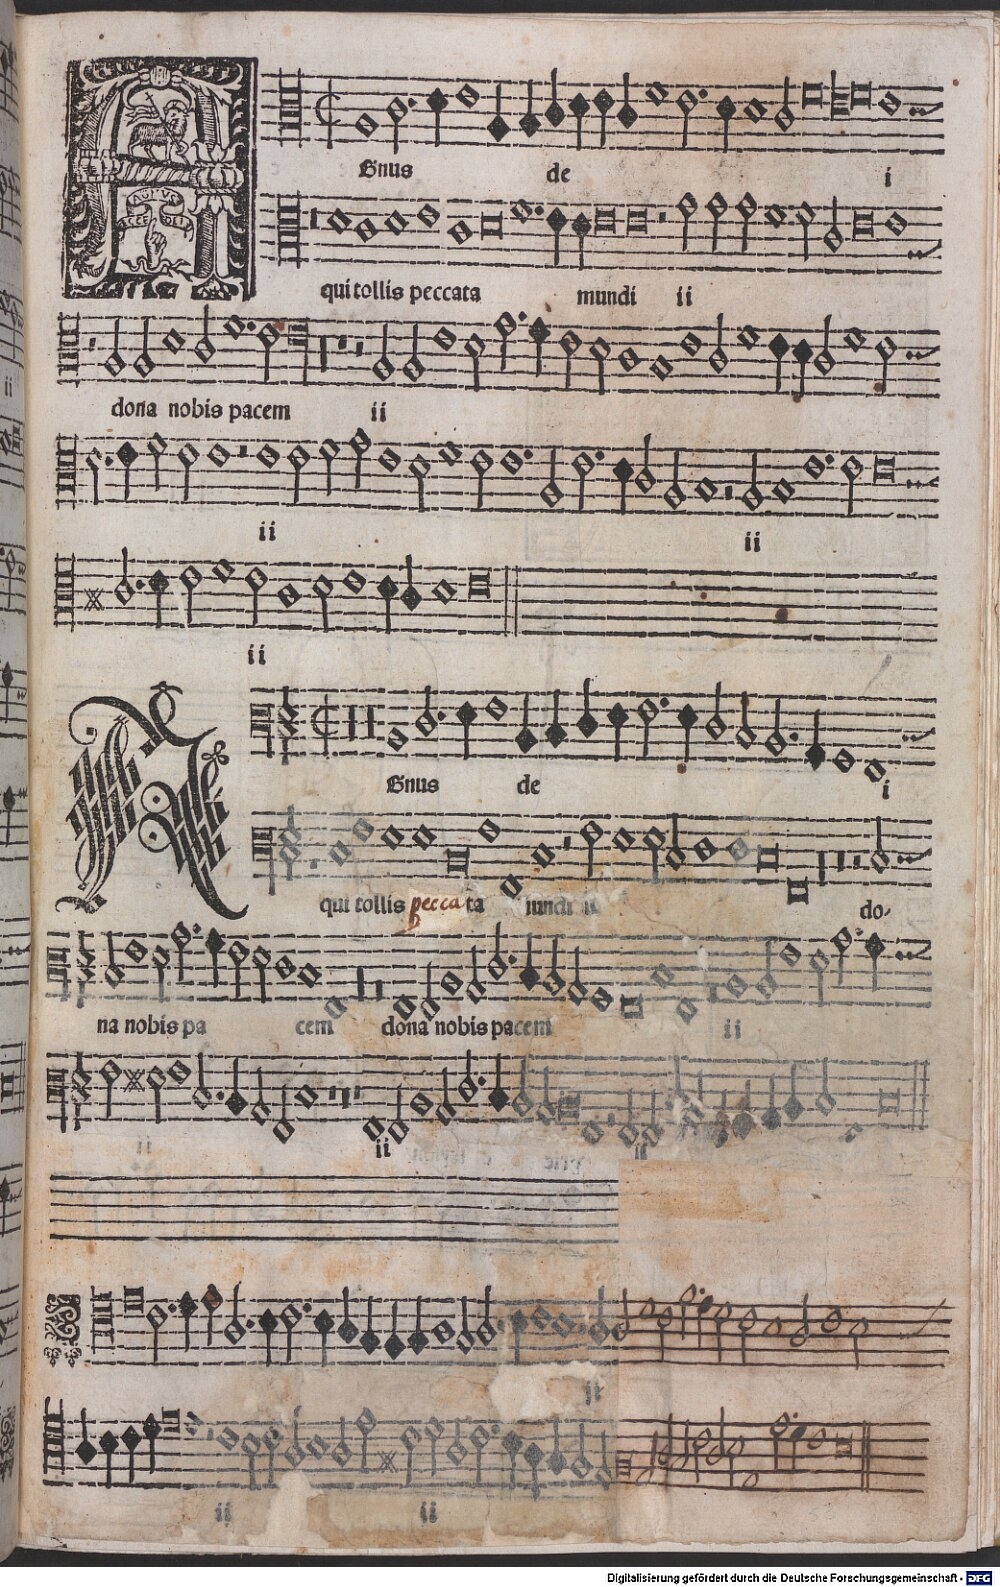 AGNVS
ECCE DEI
Gnus de i
qui tollis peccata mundi ii
dona nobis pacem ii
ii ii
ii
AGnus de i
qui tollis peccata mundi ii do-
na nobis pa cem dona nobis pacem ii
ii ii ii
ii
ii ii
Digitalisierung gefördert durch die Deutsche Forschungsgemeinschaft - DFG